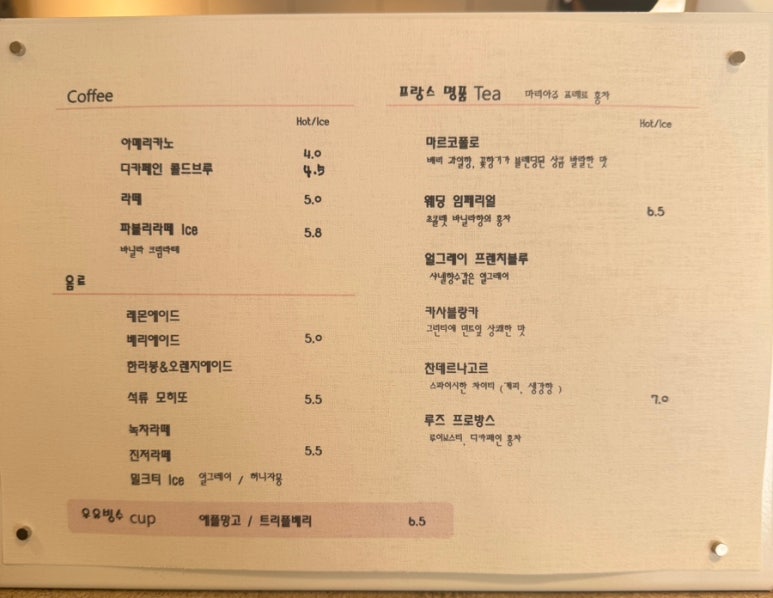 Coffee
Hot/Ice
아메리카노 4.0
디카페인 콜드브루 4.5
라떼 5.0
파블리라떼 Ice 5.8
바닐라 크림라떼
음료
레몬에이드
베리에이드 5.0
한라봉&오렌지에이드
석류 모히또 5.5
녹차라떼
진저라떼 5.5
밀크티 Ice 얼그레이 / 허니자몽
우유빙수 cup 애플망고 / 트리플베리 6.5
프랑스 명품 Tea 마리아쥬 프레르 홍차
Hot/Ice
마르코폴로
베리 과일향, 꽃향기가 블렌딩된 상큼 발랄한 맛
웨딩 임페리얼 6.5
초콜렛 바닐라향의 홍차
얼그레이 프렌치블루
샤넬향수같은 얼그레이
카사블랑카
그린티에 민트잎 상쾌한 맛
찬데르나고르
스파이시한 차이티 (계피, 생강향 )
7.0
루즈 프로방스
루이보스티, 디카페인 홍차